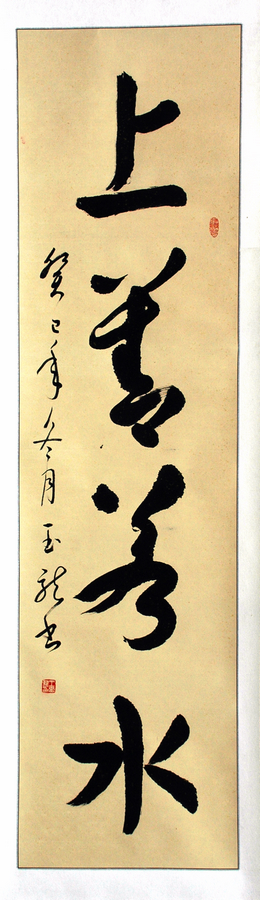 上善若水
癸巳年冬月玉龙书